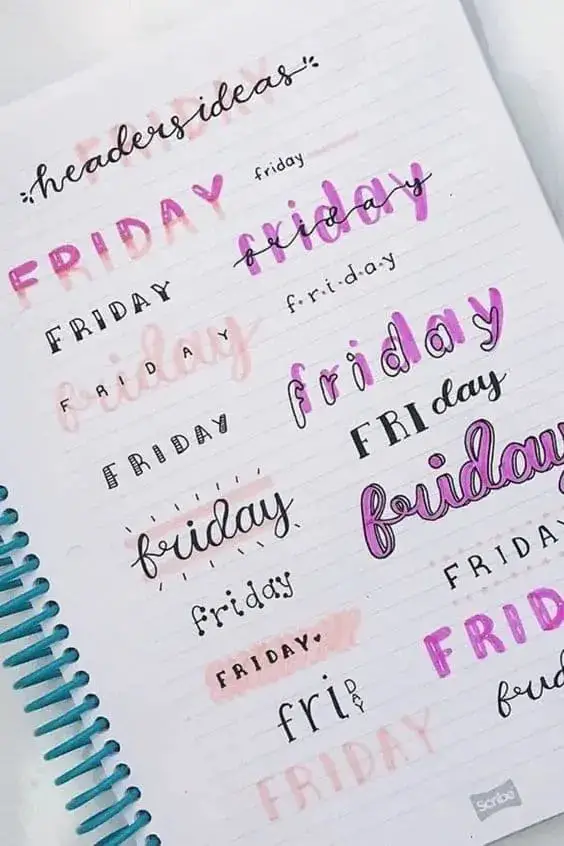 headers ideas
FRIDAY
FRIDAY
FRIDAY
friday
FRIDAY
FRIDAY
friday
friday
FRIDAY♥
friDAY
FRIDAY
friday
friday
friday
f.r.i.d.a.y
friday
FRIday
friday
FRIDAY
FRID
Scribe